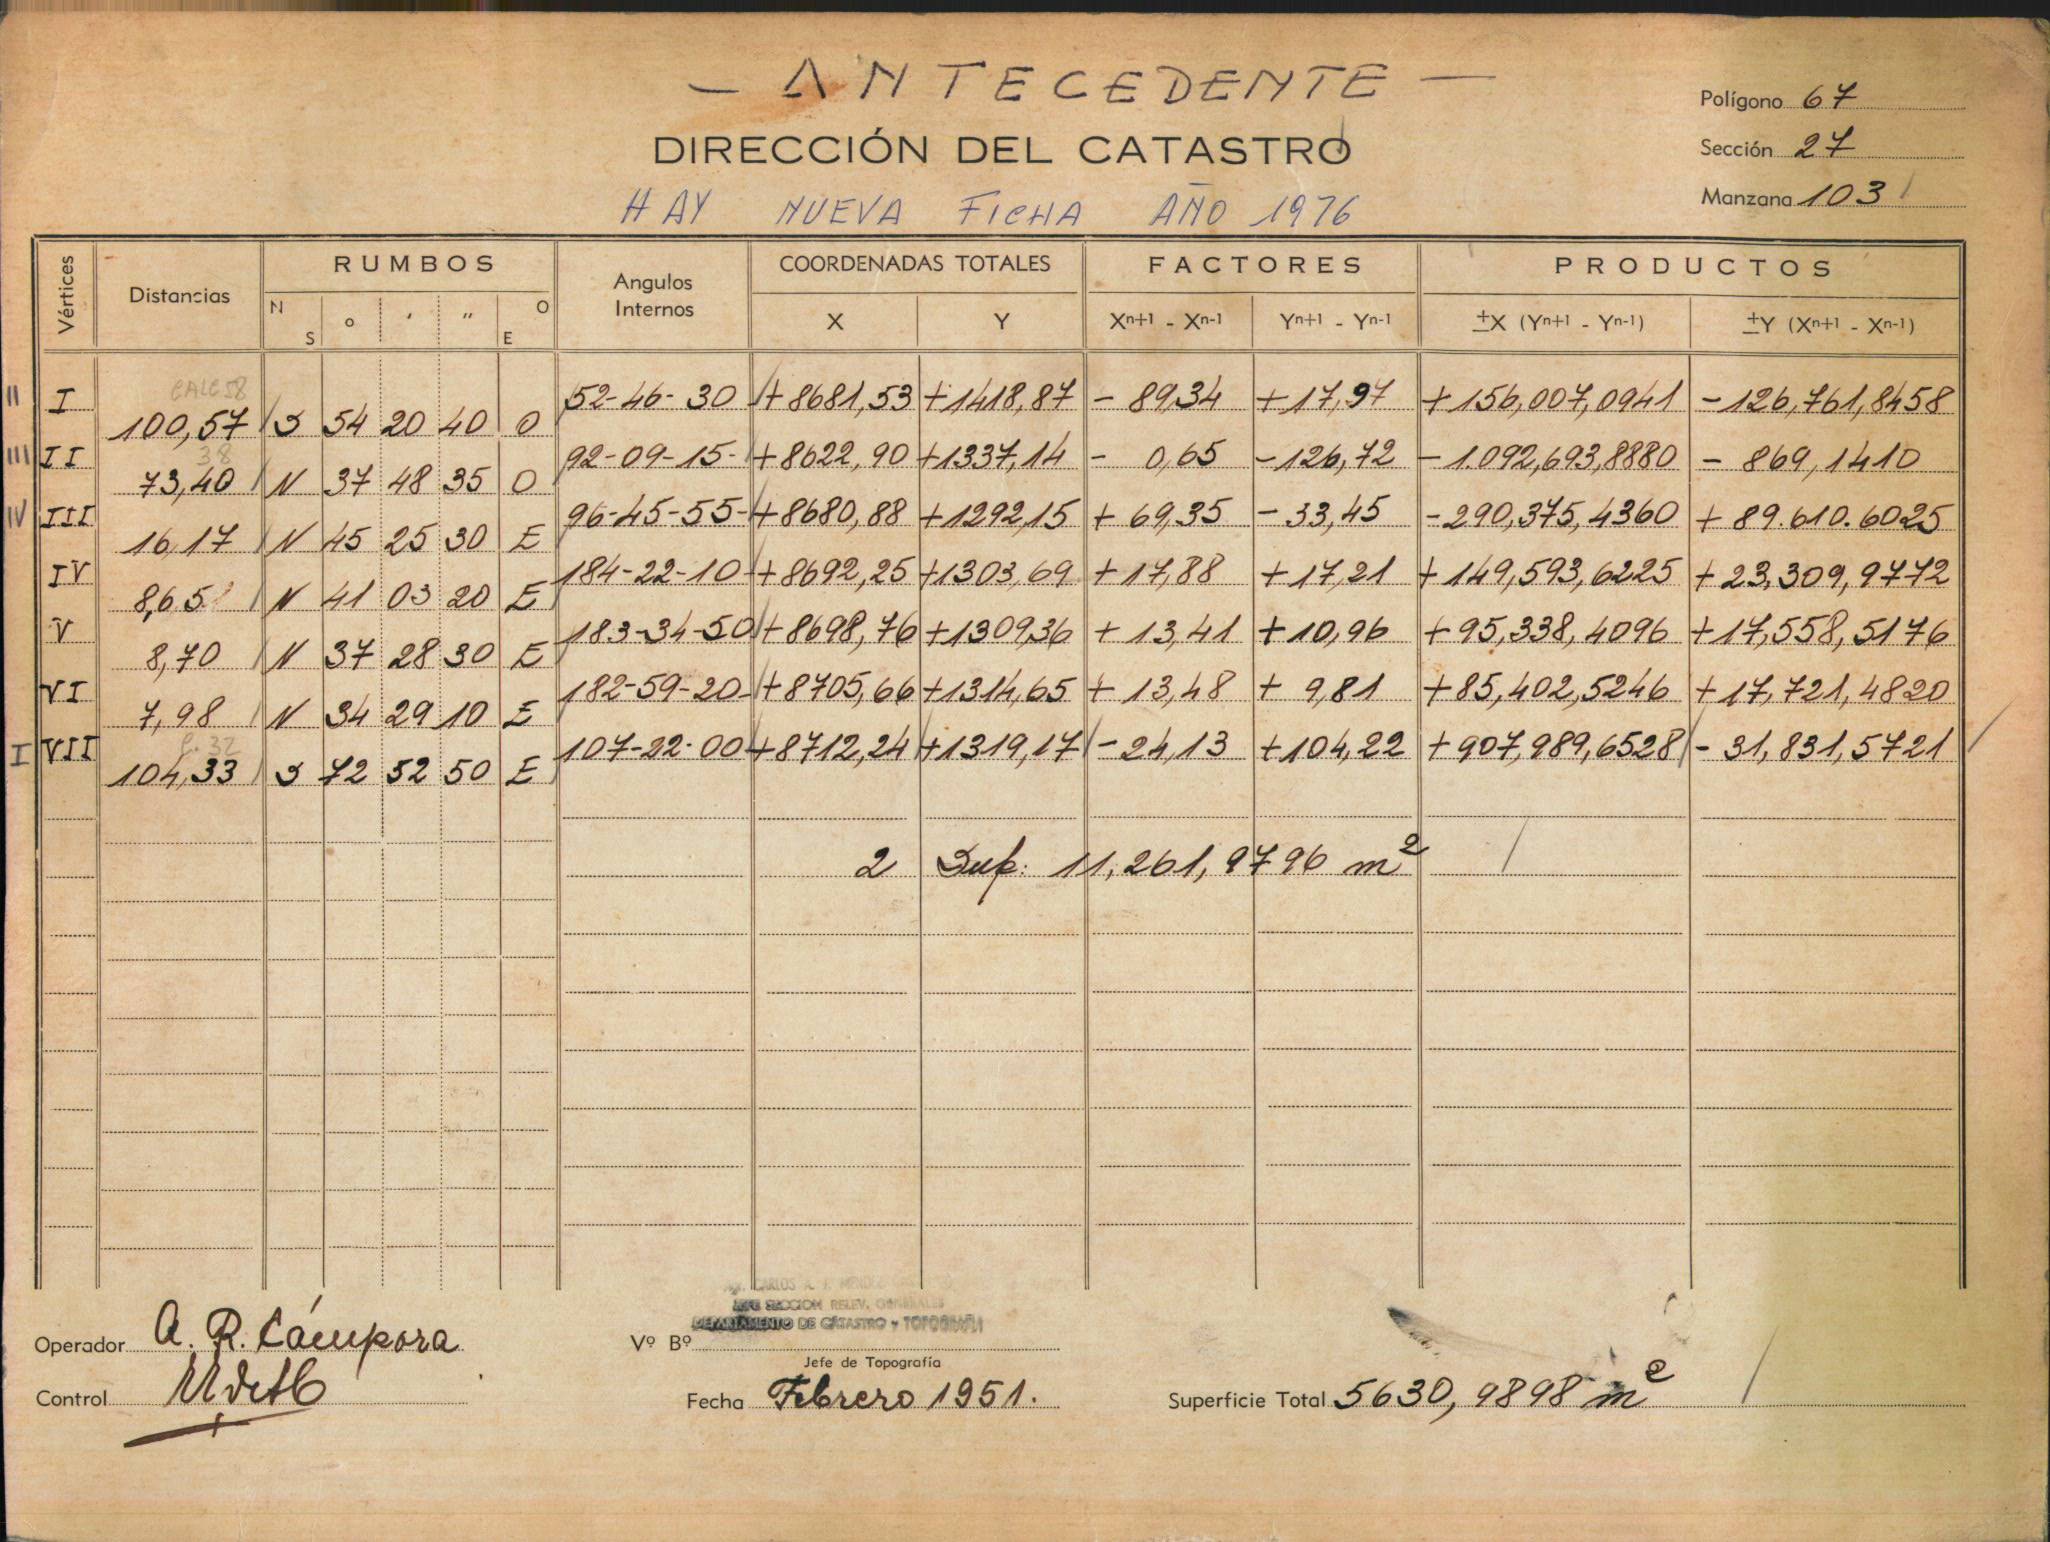 — ANTECEDENTE —
Polígono 67
DIRECCIÓN DEL CATASTRO
Sección 27
HAY NUEVA FICHA AÑO 1976
Manzana 103
Vértices Distancias RUMBOS Angulos Internos COORDENADAS TOTALES FACTORES PRODUCTOS
N S ° ' " O E X Y Xn+1 - Xn-1 Yn+1 - Yn-1 ±X (Yn+1 - Yn-1) ±Y (Xn+1 - Xn-1)
CALC 58
II I 52-46-30 +8681,53 +1418,87 - 89,34 + 17,97 +156,007,0941 -126,761,8458
100,57 S 54 20 40 O
38
III II 92-09-15- +8622,90 +1337,14 - 0,65 -126,72 -1.092,693,8880 - 869,1410
73,40 N 37 48 35 O
IV III 96-45-55- +8680,88 +1292,15 + 69,35 - 33,45 -290,375,4360 + 89.610.6025
16,17 N 45 25 30 E
IV 184-22-10 +8692,25 +1303,69 + 17,88 + 17,21 + 149,593,6225 + 23,309,9772
8,65 N 41 03 20 E
V 183-34-50 +8698,76 +1309,36 + 13,41 + 10,96 + 95,338,4096 +17,558,5176
8,70 N 37 28 30 E
VI 182-59-20- +8705,66 +1314,65 + 13,48 + 9,81 +85,402,5246 +17,721,4820
7,98 N 34 29 10 E
C. 32
I VII 107-22-00 +8712,24 +1319,17 - 24,13 +104,22 +907,989,6528 - 31,831,5721
104,33 S 72 52 50 E
2 Sup: 11,261,9796 m²
CARLOS A.
JEFE SECCION RELEV. GENERALES
DEPARTAMENTO DE CATASTRO y TOPOGRAFIA
Operador A. R. Cámpora
Vº Bº
Jefe de Topografía
Control
Fecha Febrero 1951.
Superficie Total 5630,9898 m²